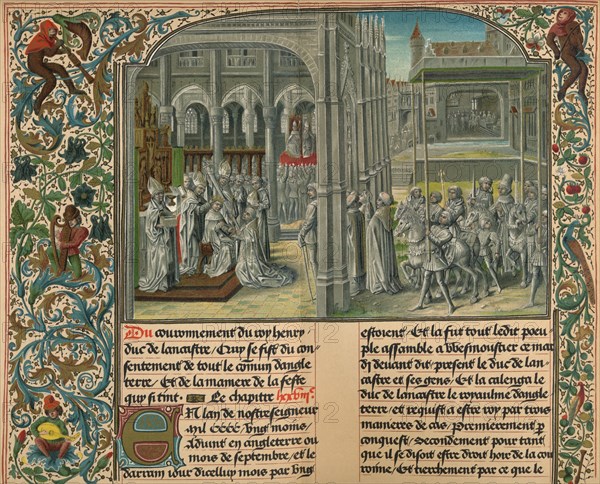 Du couronnement du roy henry
duc de lancastre / Quy se fist du con
sentement de tout le comun dangle
terre / Et de la maniere de la feste
quy si tint. Le chapitre
En lan de nostre seigneur
mil cccc. vng moins /
Aduint en angleterre ou
mois de septembre / et le
darrain iour dicelluy mois par vng
estoient / Et la fut tout ledit peu
ple assamble a Wesmoustier ce mar
dj deuant dit / present le duc de lan
castre et ses gens / Et la calenga le
duc de lancastre le royaulme dangle
terre / et requist a estre roy par trois
manieres de cas / Premierement p
conquest / Secondement pour tant
que il se disoit estre droit hoir de la cou
ronne / Et tierchement par ce que le